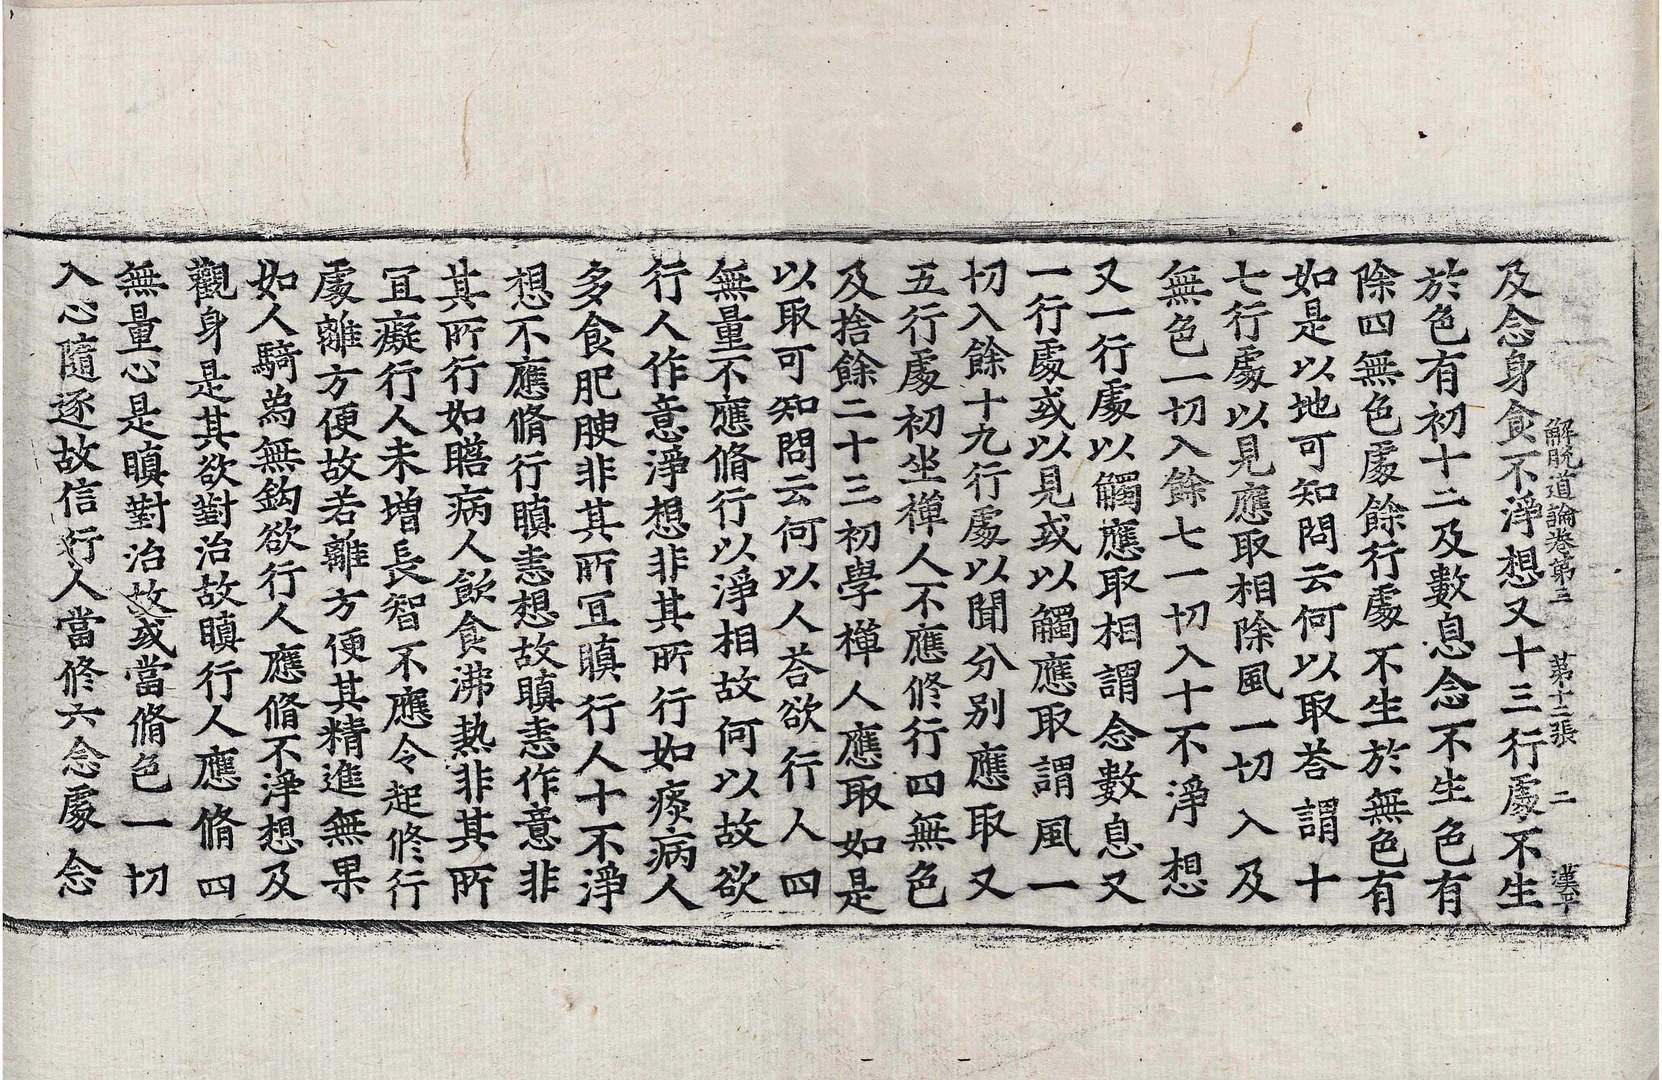 解脫道論卷第三　第十二張　二　漢平
及念身食不淨想又十三行處不生
於色有初十二及數息念不生色有
除四無色處餘行處不生於無色有
如是以地可知問云何以取荅謂十
七行處以見應取相除風一切入及
無色一切入餘七一切入十不淨想
又一行處以觸應取相謂念數息又
一行處或以見或以觸應取謂風一
切入餘十九行處以聞分別應取又
五行處初坐禪人不應修行四無色
及捨餘二十三初學禪人應取如是
以取可知問云何以人荅欲行人四
無量不應脩行以淨相故何以故欲
行人作意淨想非其所行如痰病人
多食肥腴非其所冝瞋行人十不淨
想不應脩行瞋恚想故瞋恚作意非
其所行如瞻病人飲食沸熱非其所
冝癡行人未增長智不應令起修行
處離方便故若離方便其精進無果
如人騎為無鈎欲行人應脩不淨想及
觀身是其欲對治故瞋行人應脩四
無量心是瞋對治故或當脩色一切
入心隨逐故信行人當修六念處念